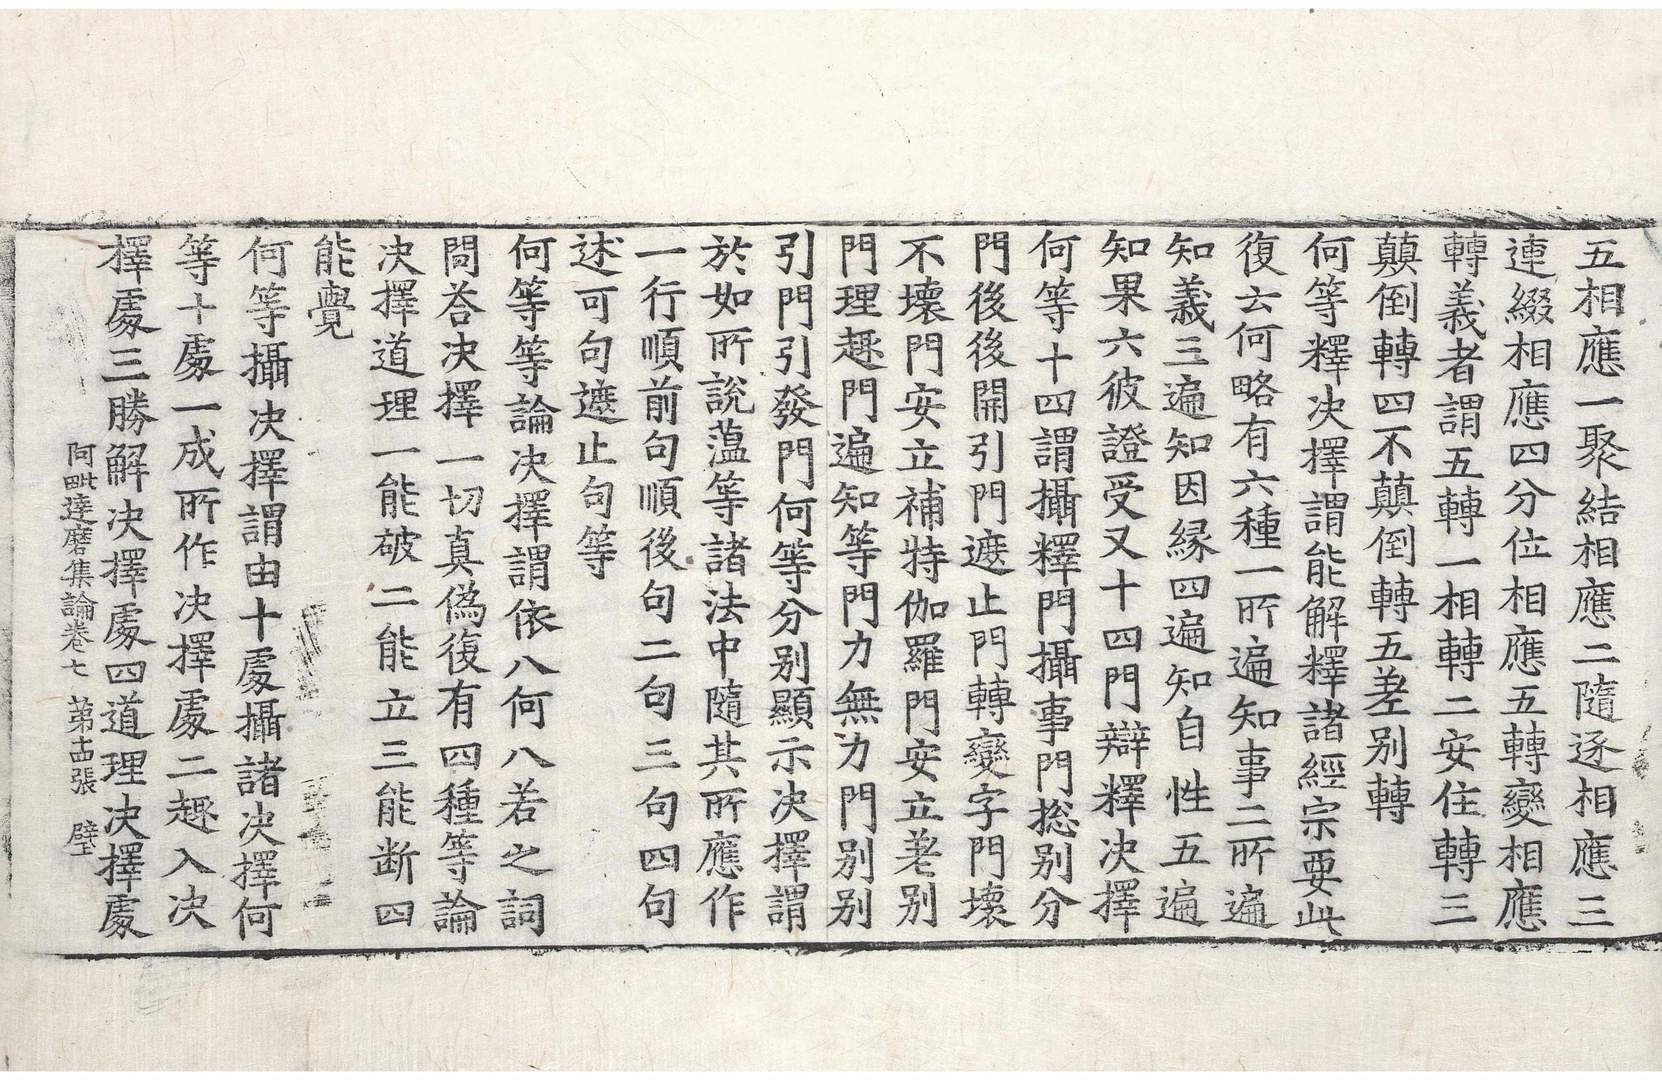 五相應一聚結相應二隨逐相應三
連綴相應四分位相應五轉變相應
轉義者謂五轉一相轉二安住轉三
顛倒轉四不顛倒轉五差别轉
何等釋决擇謂能解釋諸經宗要此
復云何略有六種一所遍知事二所遍
知義三遍知因緣四遍知自性五遍
知果六彼證受又十四門辯釋决擇
何等十四謂攝釋門攝事門捴别分
門後後開引門遮止門轉變字門壞
不壞門安立補特伽羅門安立差别
門理趣門遍知等門力無力門别别
引門引發門何等分别顯示决擇謂
於如所說薀等諸法中隨其所應作
一行順前句順後句二句三句四句
述可句遮止句等
何等等論决擇謂依八何八若之詞
問荅决擇一切真偽復有四種等論
决擇道理一能破二能立三能断四
能覺
何等攝决擇謂由十處攝諸决擇何
等十處一成所作决擇處二趣入决
擇處三勝解决擇處四道理决擇處
阿毗達磨集論卷七 第十四張 壁